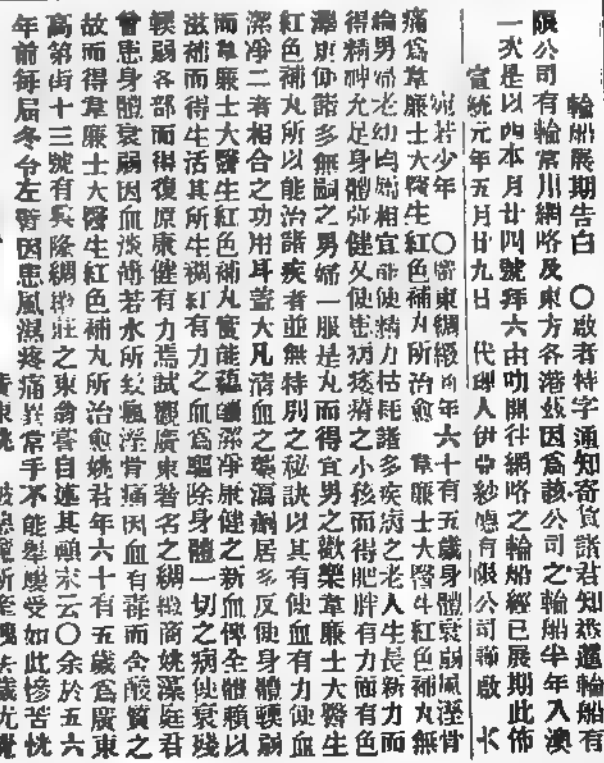 輪船展期告白　〇啟者特字通知寄貨諸君知悉暹輪船有
限公司有輪常川網咯及東方各港玆因為該公司之輪船半年入澳
一次是以四本月廿四號拜六由叻開往網咯之輪船經已展期此佈
宣統元年五月廿九日　代理人伊亞紗德有限公司謹啟
宛若少年　〇廣東綢緞商年六十有五歲身體衰弱風溼骨
痛為韋廉士大醫生紅色補丸所治愈　韋廉士大醫生紅色補丸無
論男婦老幼均屬相宜能使精力枯耗諸多疾病之老人生長新力而
得精神充足身體強健又使患癆瘵瘠之小孩而得肥胖有力面有色
澤別使諸多無嗣之男婦一服是丸而得宜男之歡樂韋廉士大醫生
紅色補丸所以能治諸疾者並無特別之秘訣以其有使血有力使血
潔凈二者相合之功用耳蓋大凡清血之藥瀉劑居多反使身體輭弱
而韋廉士大醫生紅色補丸實能蘊釀潔凈康健之新血俾全體賴以
滋補而得生活其所生稠紅有力之血為驅除身體一切之病使衰殘
輭弱各部而得復原康健有力焉試觀廣東著名之綢緞商姚藻庭君
曾患身體衰弱因血淡薄若水所致瘋溼骨痛因血有毒而含酸質之
故而得韋廉士大醫生紅色補丸所治愈姚君年六十有五歲為廣東
高第街十三號有興隆綢緞莊之東翁嘗自述其顛末云〇余於五六
年前每屆冬令左臂因患風濕疼痛異常手不能舉屢受如此慘苦恍